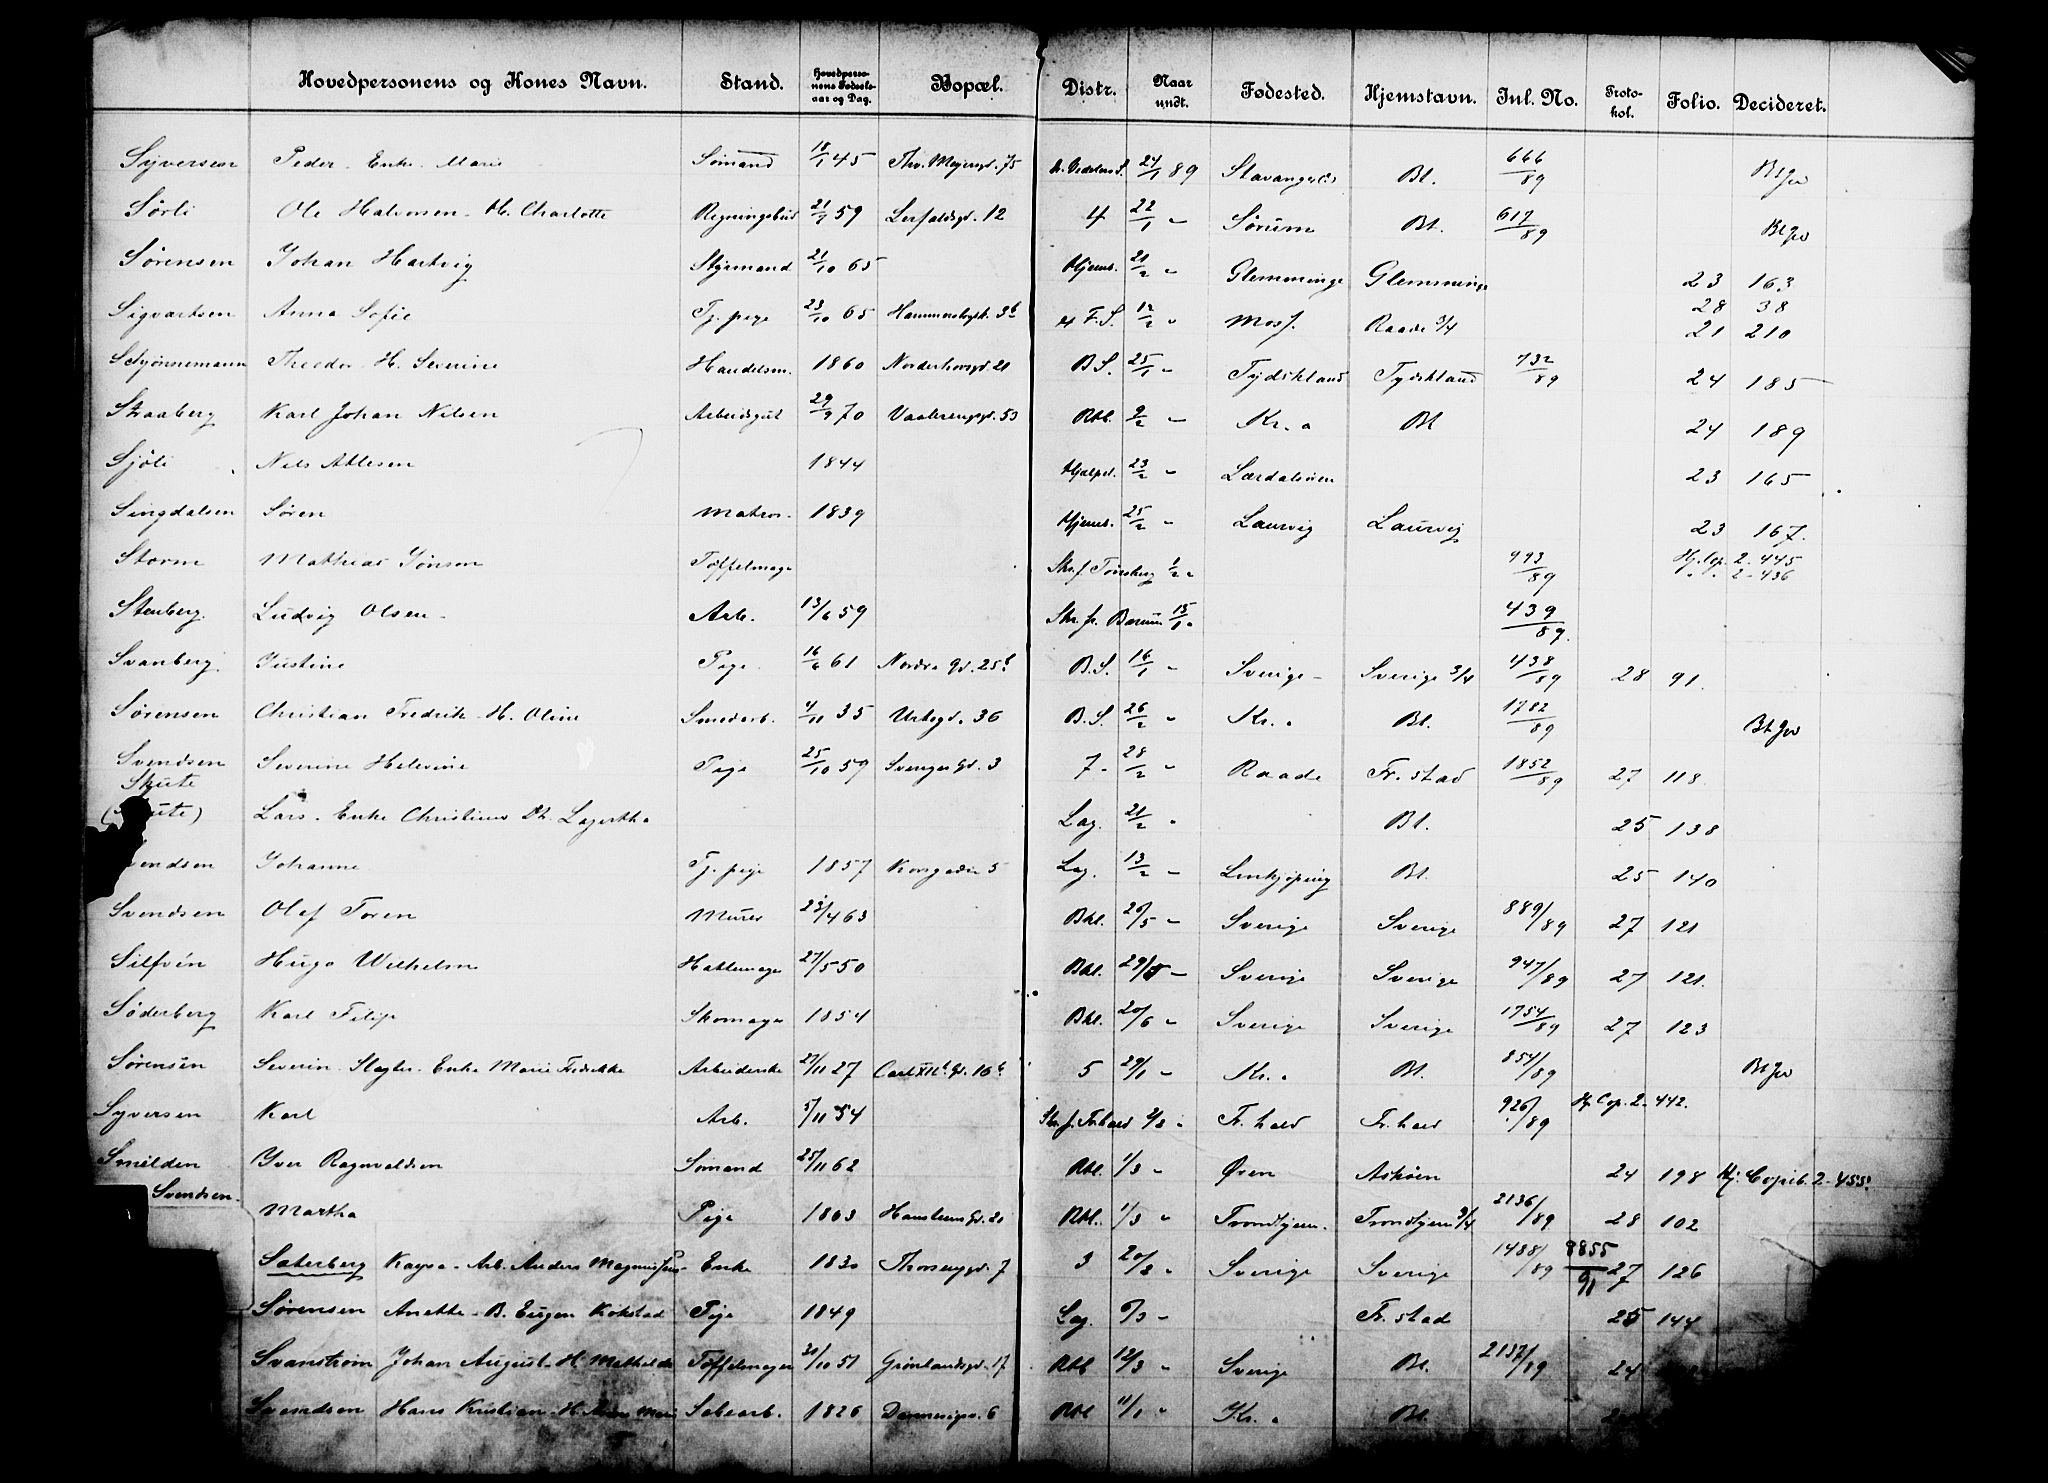 Hovedpersonens og Kones Navn. Stand. Hovedpersonens Fødselsaar og Dag. Bopæl. Distr. Naar undt. Fødested. Hjemstavn. Inl. No. Protokol. Folio. Decideret.
Syversen Peder Enke Marie Sömand 18/1 45 Thv. Meyersgd. 75 24/1 89 Bt. 666/89
Sörli Ole Halvorsen H. Charlotte Regningsbud 59 Lerfaldsgd. 12 4 22/1 " Sörum Bt. 617/89
Sörensen Johan Hartvig Styrmand 21/10 65 Hjems. 21/2 " Glemminge Glemminge 23 163
Sigvartsen Anna Sofie Tj. pige 23/10 65 F.S. 12/2 " Moss. Raade 3/4 28 38
21 210
Schjönnemann Theodor H. Severine Handelsm. 1860 Norderhovgd. 21 B.S. 25/1 " Tydskland Tydskland 732/89 24 185
Skaaberg Karl Johan Nilsen Arbeidsgut 29/9 70 Vaalerenggd. 53 Rbl. 9/2 " Kr.a Bt 24 189
Sjöli Nils Atlesen 1844 Hjælpel. 23/2 " Lærdalsören 23 165
Singdalsen Sören Matros 1839 Hjems. 25/2 " Laurvig Laurvig 23 167.
Storm Mathias Jönson Töffelmager Skr. f. Tönsberg 1/2 " 993/89 Hj. Cop. 2 - 445
" " 2 - 436
Stenberg Ludvig Olsen Arb. 13/6 59 Skr. fr. Bærum 15/1 " 439/89.
Svanberg Justine Pige 16/6 61 Nordre gd. 25b B.S. 16/1 " Sverige Sverige 3/4 438/89 28 91.
Sörensen Christian Fredrik H. Oline Smedarb. 4/11 35 Urtegd. 36 B.S. 26/2 " Kr.a Bt. 1782/89
Svendsen Severine Helevine Pige 25/10 59 Svenger gd. 3 7. 28/2 " Raade Fr. stad 1852/89 27 118.
Skute
Lars Enke Christiane Dt. Lagertha Lag. 21/2 " Bt. 25 138
endsen Johanne Tj. pige 1857 5 Lag. 13/2 " Linkjöping Bt. 25 140
Svendsen Olef Toren Murer 23/4 63 Bkl. 20/5 " Sverige Sverige 889/89 27 121
Silfvén Hugo Wilhelm Hattemager 27/5 50 Bkl. 29/5 " Sverige Sverige 947/89 27 121.
Söderberg Karl Filip Skomager 1854 Bkl. 20/6 " Sverige Sverige 1754/89 27 123
Sörensen Severin Slagter. Enke Marie Fredrikke Arbeiderske 27/11 27 Carl XII's gd. 16b 5 29/1 " Kr.a Bt. 854/89
Syversen Karl Arb. 5/11 54 Skr. f. Fr.hald 2/2 " Fr. hald Fr. hald 926/89 Hj Cop. 2. 442.
Smélden Iver Ragnvaldsen Sömand 25/11 62 Rbl. 1/3 " Ören Asköen 24 198 Hj. Copieb. 2 - 455.
Svendsen. Martha Pige 1863 Hausleem gd. 21 Rbl. 1/3 " Trondhjem. Trondhjem 3/4 2136/89 28 102
Saterberg Kaysa - Arb. Anders Magnussen Enke 1830 Thorsenggd. 7 3 20/2 " Sverige Sverige 1488/89 8855/91 27 126
Sörensen Anette - B. Eugen Kokstad Pige 1849 Lag. 6/3 " Fr. stad 25 144
Svanström Johan August H. Mathilde Töffelmager 51 Grönlandsgd. 17 Rbl 12/3 " Sverige Bt. 2137/89 24
Svendsen Hans Kristian H. Marie 1826 6 Rbl 11/1 " Kr.a Bt.